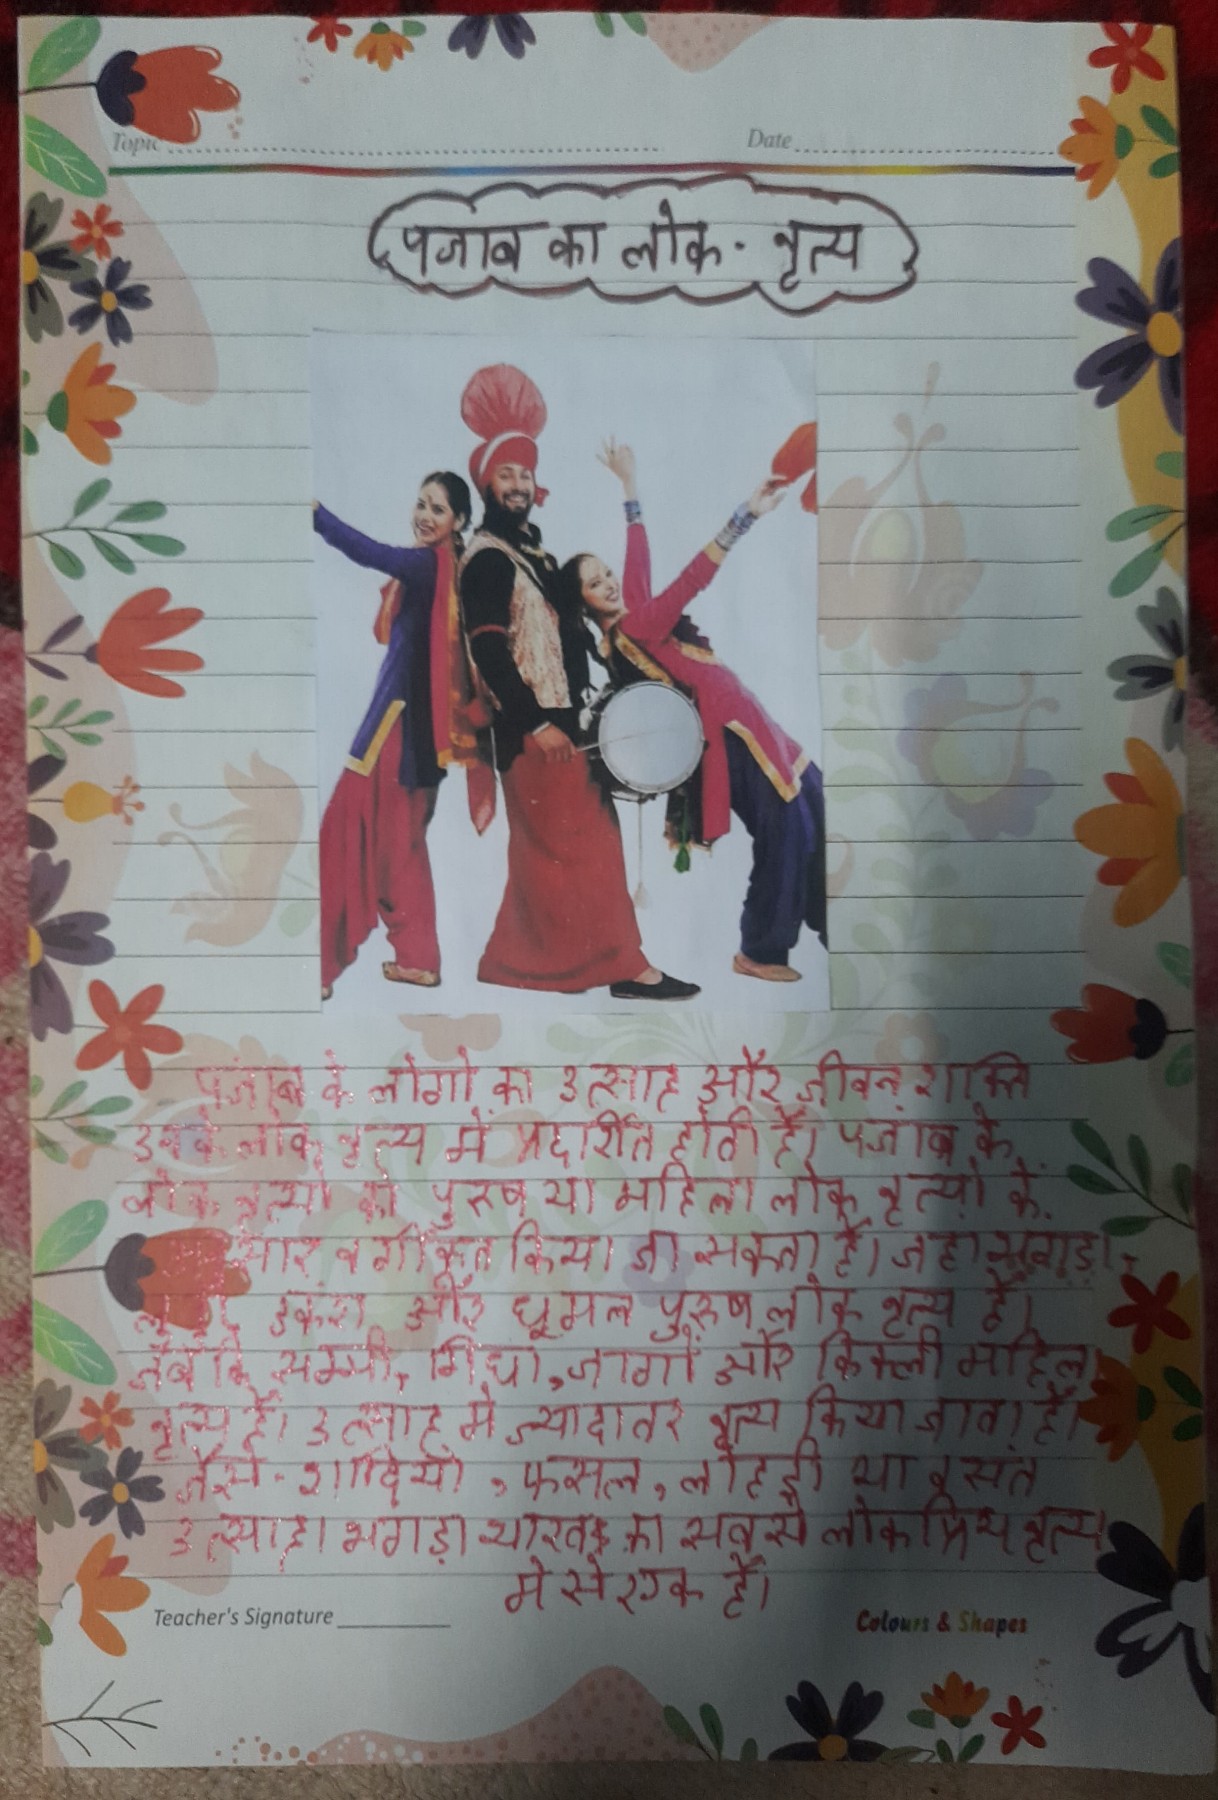 Topic
Date
पजाब का लोक - नृत्य
पंजाब के लोगो का उत्साह और जीवन शक्ति
उनके लोक नृत्य में प्रदर्शित होती है। पंजाब के
लोक नृत्यो को पुरुष या महिला लोक नृत्यो के
वर्गीकृत किया जा सकता है। जहा भगड़ा,
और घूमल पुरुष लोक नृत्य है।
जबकि सम्मी, गिधा, जागो और किक्ली महिला
नृत्य है। उत्साह मे ज्यादातर नृत्य किया जाता है।
जैसे - शादियो, फसल, लोहड़ी या वसंत
उत्साह। भगड़ा का सबसे लोकप्रिय नृत्य
मे से एक है।
Teacher's Signature
Colours & Shapes